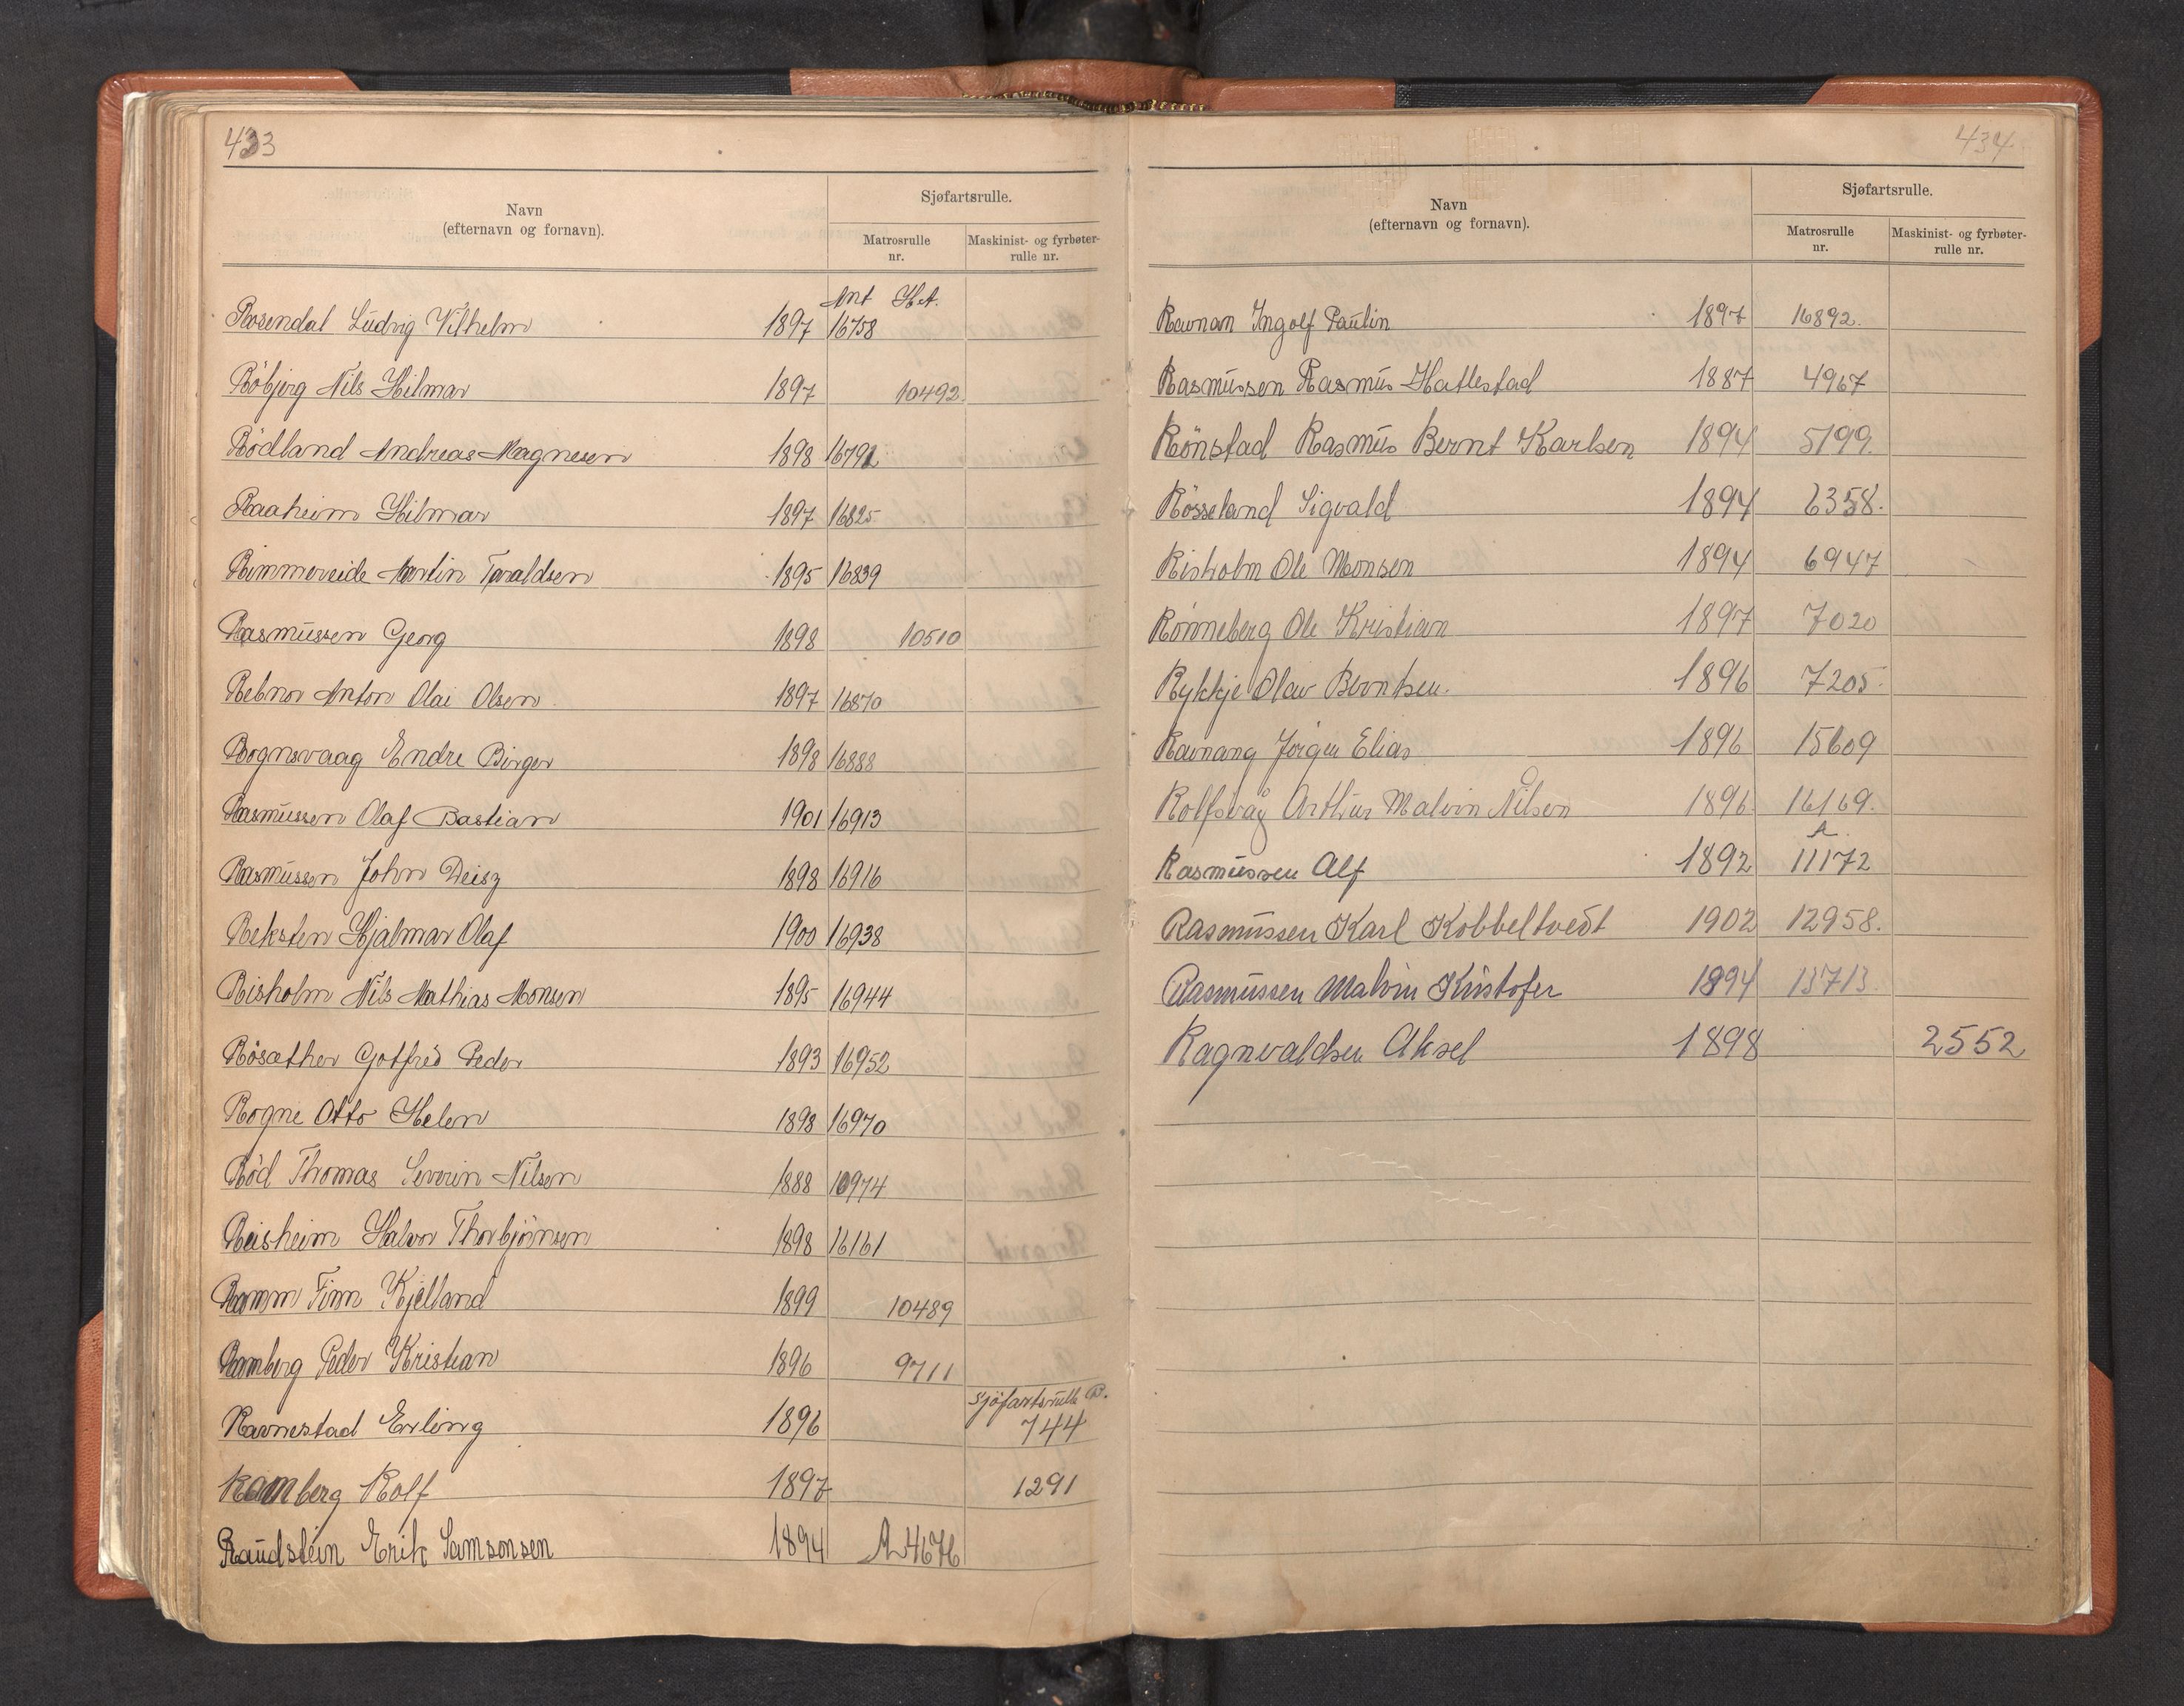 433
Navn
(efternavn og fornavn).
Sjøfartsrulle.
Matrosrulle
nr.
Maskinist- og fyrbøter-
rulle nr.
Ant Ht.
Rosendal Ludvig Vilhelm 1897 16758
Röbjerg Nils Hilmar 1897 10492
Rödland Andreas Magnesen 1898 16792
Raaheim Hilmar 1897 16825
Rimmereide Martin Taraldsen 1895 16839
Rasmussen Georg 1898 10510
Rebnor Anton Olai Olsen 1897 16870
Rognsvaag Endre Birger 1898 16888
Rasmussen Olaf Bastian 1901 16913
Rasmussen John Deisz 1898 16916
Reksten Hjalmar Olaf 1900 16938
Risholm Nils Mathias Monsen 1895 16944
Rösæther Gotfred Peder 1893 16952
Rogne Otto Helen 1898 16970
Röd Thomas Severin Nilsen 1888 16974
Reisheim Halvor Thorbjörnsen 1898 16161
Ramm Finn Kjelland 1899 10489
Ramberg Peder Kristian 1896 9711
Sjöfartsrulle B.
Ravnestad Erling 1896 744
Ramberg Rolf 1897 1291
Raudstein Erik Samsonsen 1894 A 4676
434
Navn
(efternavn og fornavn).
Sjøfartsrulle.
Matrosrulle
nr.
Maskinist- og fyrbøter-
rulle nr.
Ravnan Ingolf Paulin 1897 16892.
Rasmussen Rasmus Hatlestad 1887 4967
Rönstad Rasmus Bernt Karlsen 1894 5199.
Rösseland Sigvald 1894 6358.
Risholm Ole Monsen 1894 6947
Rönneberg Ole Kristian 1897 7020
Rykkje Olav Berntsen. 1896 7205.
Ravnang Jörgen Elias 1896 15609
Rolfsvåg Arthur Malvin Nilsen 1896 16169.
A
Rasmussen Alf 1892 11172
Rasmussen Karl Kobbeltvedt 1902 12958.
Rasmussen Malvin Kristofer 1894 13713.
Ragnvaldsen Aksel 1898 2552